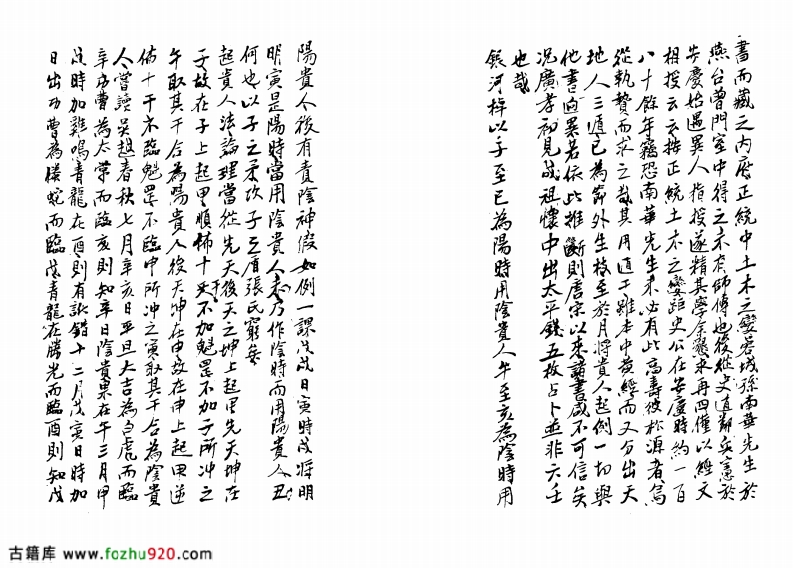 書而藏之內府正統中土木之變吾城孫南華先生於
燕台曹門室中得之未有師傳也後從史道鄰兵憲於
安慶始遇異人指授遂精其學余懇求再四僅以經文
相授云云按正統土木之變距史公在安慶時約一百
八十餘年竊恐南華先生未必有此高壽彼稱源者烏
從執贄而求之哉其用直干雖本中黃經而又分出天
地人三道已為節外生枝至於月將貴人起例一切與
他書迥異若依此推斷則唐宋以來諸書咸不可信矣
況廣孝初見成祖懷中出太平錢五枚占卜並非六壬
也哉
銀河棹以子至巳為陽時用陰貴人午至亥為陰時用
陽貴人後有貴陰神假如例一課戊戌日寅時戌將明
明寅是陽時當用陰貴人未乃作陰時而用陽貴人丑
何也以子之矛攻子之盾張氏窮矣
起貴人法論理當從先天後天之坤上起甲先天坤在
子故在子上起甲順佈十干不加魁罡不加子所沖之
午取其干合為陽貴人後天坤在申故在申上起甲逆
佈十干亦不臨魁罡不臨申所沖之寅取其干合為陰貴
人嘗讀吳越春秋七月辛亥日平旦大吉為白虎而臨
辛功曹為太常而臨亥則知辛日陰貴果在午三月甲
戌時加雞鳴青龍在酉則有訛錯十二月戊寅日時加
日出功曹為螣蛇而臨戊青龍在勝光而臨酉則知戊
古籍库 www.fozhu920.com